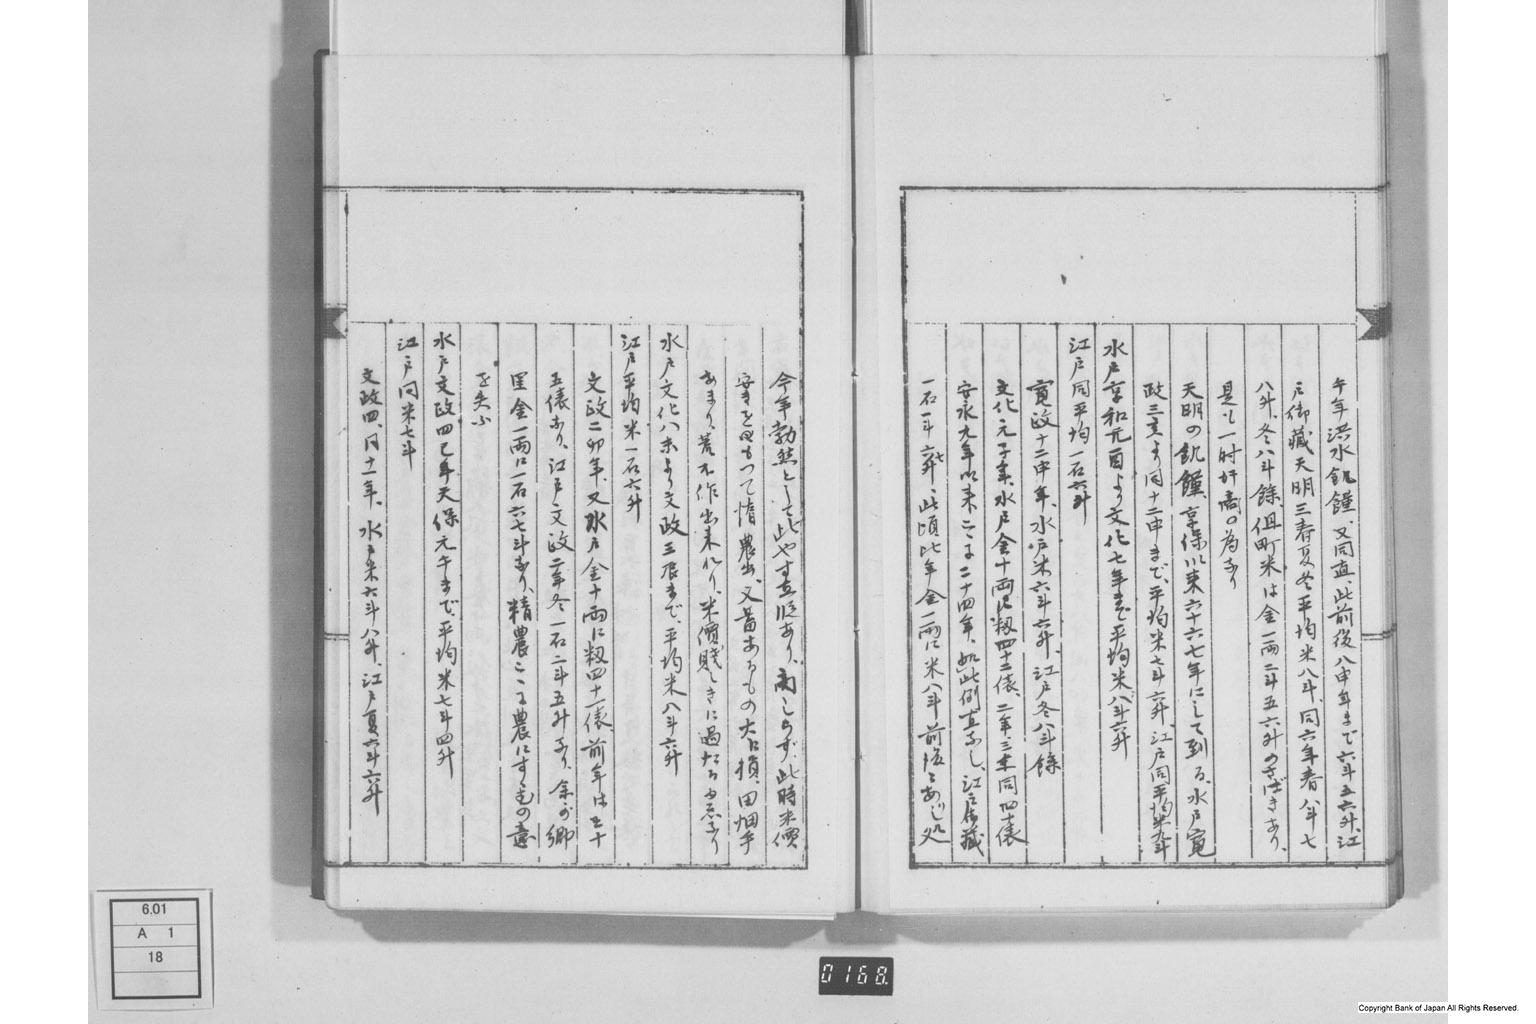 午年洪水飢饉、又同直、此前後八申年まで六斗五六升、江
戸御藏天明三春夏冬平均米八斗、同六年春八斗七
八升、冬八斗餘、但町米は金一両二斗五六升のさばきあり、
是も一時奸商の為なり
天明の飢饉、享保以来六十六七年にして到る、水戸寛
政三亥より同十二申まで、平均米七斗六升、江戸同平均米九斗
水戸享和元酉より文化七年まで平均米八斗六升
江戸同平均一石六升
寛政十二申年、水戸米六斗六升、江戸冬八斗餘
文化元子年、水戸金十両に籾四十二俵、二年、三年同四十俵
安永九年以来こゝに二十四年、如此例直なし、江戸御藏
一石一斗六升、此頃比年金一両に米八斗前後にありし処
今年勃然として此やす直段あり、商しらず、此時米價
安きをもつて惰農出、又蓄あるもの大に損、田畑手
あまり、荒不作出来れり、米價賤しきに過たるも忌なり
水戸文化八未より文政三辰まで、平均米八斗六升
江戸平均米一石六升
文政二卯年、又水戸金十両に籾四十一俵前年は三十
五俵なり、江戸文政二年冬一石二斗五升なり、余が郷
里金一両に一石六七斗なり、精農こゝに農にすむの意
を失ふ
水戸文政四巳年天保元午まで、平均米七斗四升
江戸同米七斗
文政四、同十一年、水戸米六斗八升、江戸夏六斗六升
6.01
A 1
18
0168.
Copyright Bank of Japan All Rights Reserved.